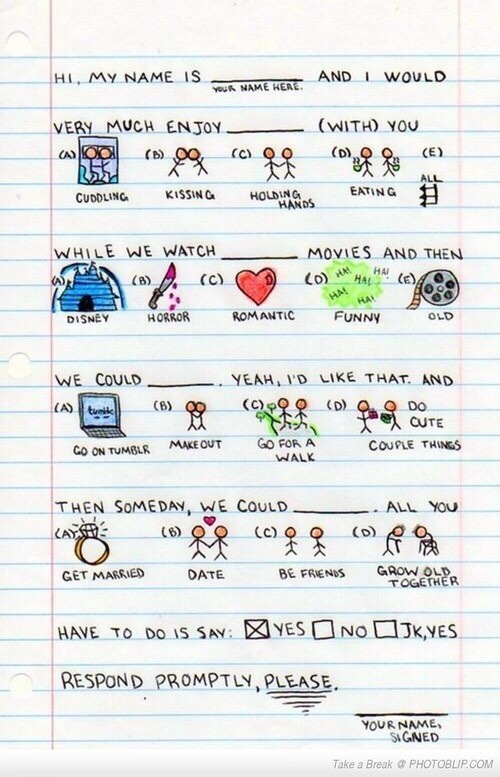 HI, MY NAME IS ________ AND I WOULD
YOUR NAME HERE.
VERY MUCH ENJOY ________ (WITH) YOU
(A) (B) (C) (D) (E)
CUDDLING KISSING HOLDING HANDS EATING ALL
WHILE WE WATCH ________ MOVIES AND THEN
(A) (B) (C) (D) HA! HA! HA! HA! HA! (E)
DISNEY HORROR ROMANTIC FUNNY OLD
WE COULD ________. YEAH, I'D LIKE THAT. AND
(A) tumblr (B) (C) (D) DO CUTE
GO ON TUMBLR MAKEOUT GO FOR A WALK COUPLE THINGS
THEN SOMEDAY, WE COULD ________. ALL YOU
(A) (B) (C) (D)
GET MARRIED DATE BE FRIENDS GROW OLD TOGETHER
HAVE TO DO IS SAY: ☒ YES ☐ NO ☐ JK, YES
RESPOND PROMPTLY, PLEASE.
YOUR NAME, SIGNED
Take a Break @ PHOTOBLIP.COM